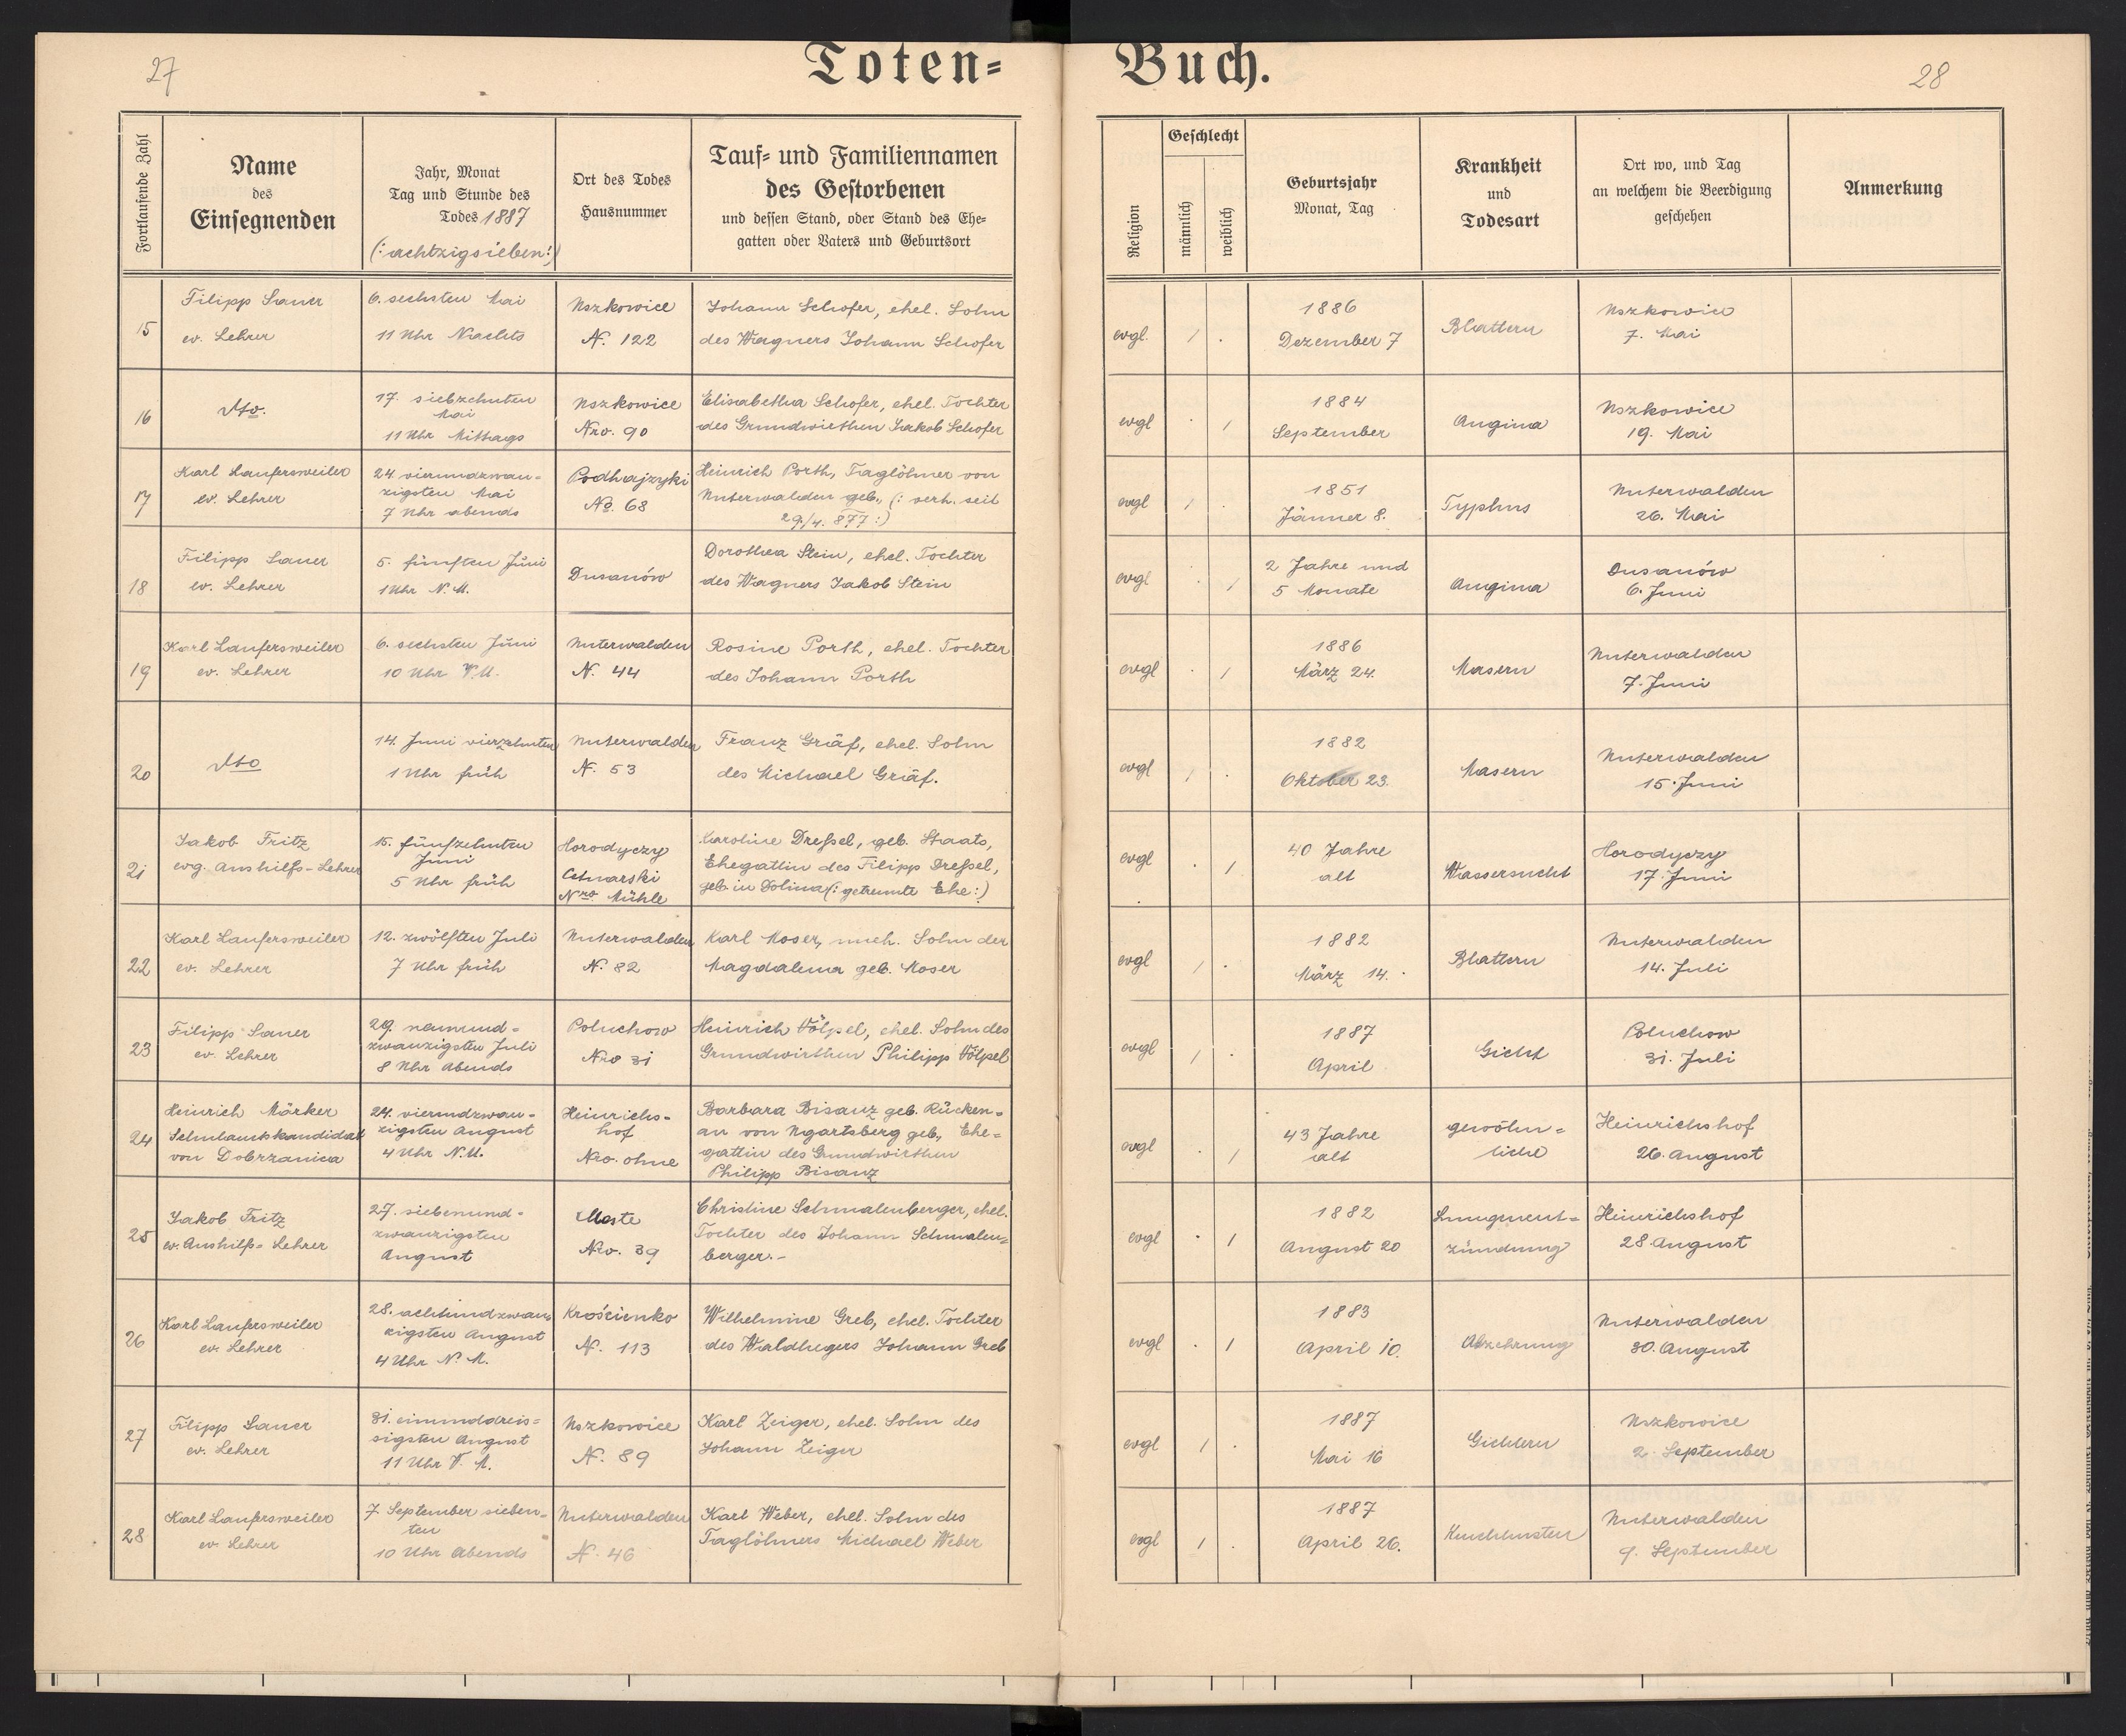 27
Toten=
Fortlaufende Zahl
Name
des
Einsegnenden
Jahr, Monat
Tag und Stunde des
Todes 1887
(: achtzigsieben :)
Ort des Todes
Hausnummer
Tauf= und Familiennamen
des Gestorbenen
und dessen Stand, oder Stand des Ehe=
gatten oder Vaters und Geburtsort
15
Filipp Sauer
ev. Lehrer
6. sechsten Mai
11 Uhr Nachts
Uszkowice
N. 122
Johann Schofer, ehel. Sohn
des Wagners Johann Schofer
16
dto.
17. siebzehnten
Mai
11 Uhr Mittags
Uszkowice
Nro. 90
Elisabetha Schofer, ehel. Tochter
des Grundwirthen Jakob Schofer
17
Karl Laufersweiler
ev. Lehrer
24. vierundzwan=
zigsten Mai
7 Uhr abends
Podhajzyki
No. 68
Heinrich Porth, Taglöhner von
Unterwalden geb., (: verh. seit
29./4. 877 :)
18
Filipp Sauer
ev. Lehrer
5. fünften Juni
1 Uhr N. M.
Dusanów
Dorothea Stein, ehel. Tochter
des Wagners Jakob Stein
19
Karl Laufersweiler
ev. Lehrer
6. sechsten Juni
10 Uhr V. M.
Unterwalden
N. 44
Rosine Porth, ehel. Tochter
des Johann Porth
20
dto
14. Juni vierzehnten
1 Uhr früh
Unterwalden
N. 53
Franz Gräf, ehel. Sohn
des Michael Gräf.
21
Jakob Fritz
evg. Aushilfs-Lehrer
15. fünfzehnten
Juni
5 Uhr früh
Horodyczy
Cetnarski
Nro Mühle
Karoline Dreßel, geb. Staats,
Ehegattin des Filipp Dreßel,
geb. in Dolina (: getrennte Ehe :)
22
Karl Laufersweiler
ev. Lehrer
12. zwölften Juli
7 Uhr früh
Unterwalden
N. 82
Karl Moser, uneh. Sohn der
Magdalena geb. Moser
23
Filipp Sauer
ev. Lehrer
29. neunund=
zwanzigsten Juli
8 Uhr Abends
Poluchow
Nro 31
Heinrich Völpel, ehel. Sohn des
Grundwirthen Philipp Völpel
24
Heinrich Märker
Schulamtskandidat
von Dobrzanica
24. vierundzwan=
zigsten August
4 Uhr N. M.
Heinrichs=
hof
Nro. ohne
Barbara Bisanz geb. Rücken=
au von Ugartsberg geb., Ehe=
gattin des Grundwirthen
Philipp Bisanz
25
Jakob Fritz
ev. Aushilfs= Lehrer
27. siebenund=
zwanzigsten
August
Uszte
Nro. 39
Christine Schmalenberger, ehel.
Tochter des Johann Schmalen=
berger.-
26
Karl Laufersweiler
ev. Lehrer
28. achtundzwan
zigsten August
4 Uhr N. M.
Krościenko
N. 113
Wilhelmine Greb, ehel. Tochter
des Waldhegers Johann Greb
27
Filipp Sauer
ev. Lehrer
31. einunddreis=
sigsten August
11 Uhr V. M.
Uszkowice
N. 89
Karl Zeiger, ehel. Sohn des
Johann Zeiger
28
Karl Laufersweiler
ev. Lehrer
7. September sieben=
ten
10 Uhr Abends
Unterwalden
N. 46
Karl Weber, ehel. Sohn des
Taglöhners Michael Weber
28
Buch.
Religion
Geschlecht
männlich
weiblich
Geburtsjahr
Monat, Tag
Krankheit
und
Todesart
Ort wo, und Tag
an welchem die Beerdigung
geschehen
Anmerkung
evgl.
1
.
1886
Dezember 7
Blattern
Uszkowice
7. Mai
evgl
.
1
1884
September
Angina
Uszkowice
19. Mai
evgl
1
.
1851
Jänner 8.
Typhus
Unterwalden
26. Mai
evgl
.
1
2 Jahre und
5 Monate
Angina
Dusanów
6. Juni
evgl
.
1
1886
März 24.
Masern
Unterwalden
7. Juni
evgl
1
.
1882
Oktober 23.
Masern
Unterwalden
15. Juni
evgl
.
1
40 Jahre
alt
Wassersucht
Horodyczy
17. Juni
evgl
1
.
1882
März 14.
Blattern
Unterwalden
14. Juli
evgl
1
.
1887
April
Gicht
Poluchow
31. Juli
evgl
.
1
43 Jahre
alt
gewöhn=
liche
Heinrichshof
26. August
evgl
.
1
1882
August 20
Lungenent=
zündung
Heinrichshof
28. August
evgl
.
1
1883
April 10.
Abzehrung
Unterwalden
30. August
evgl
1
.
1887
Mai 16
Gichtern
Uszkowice
2. September
evgl
1
.
1887
April 26.
Keuchhusten
Unterwalden
9. September